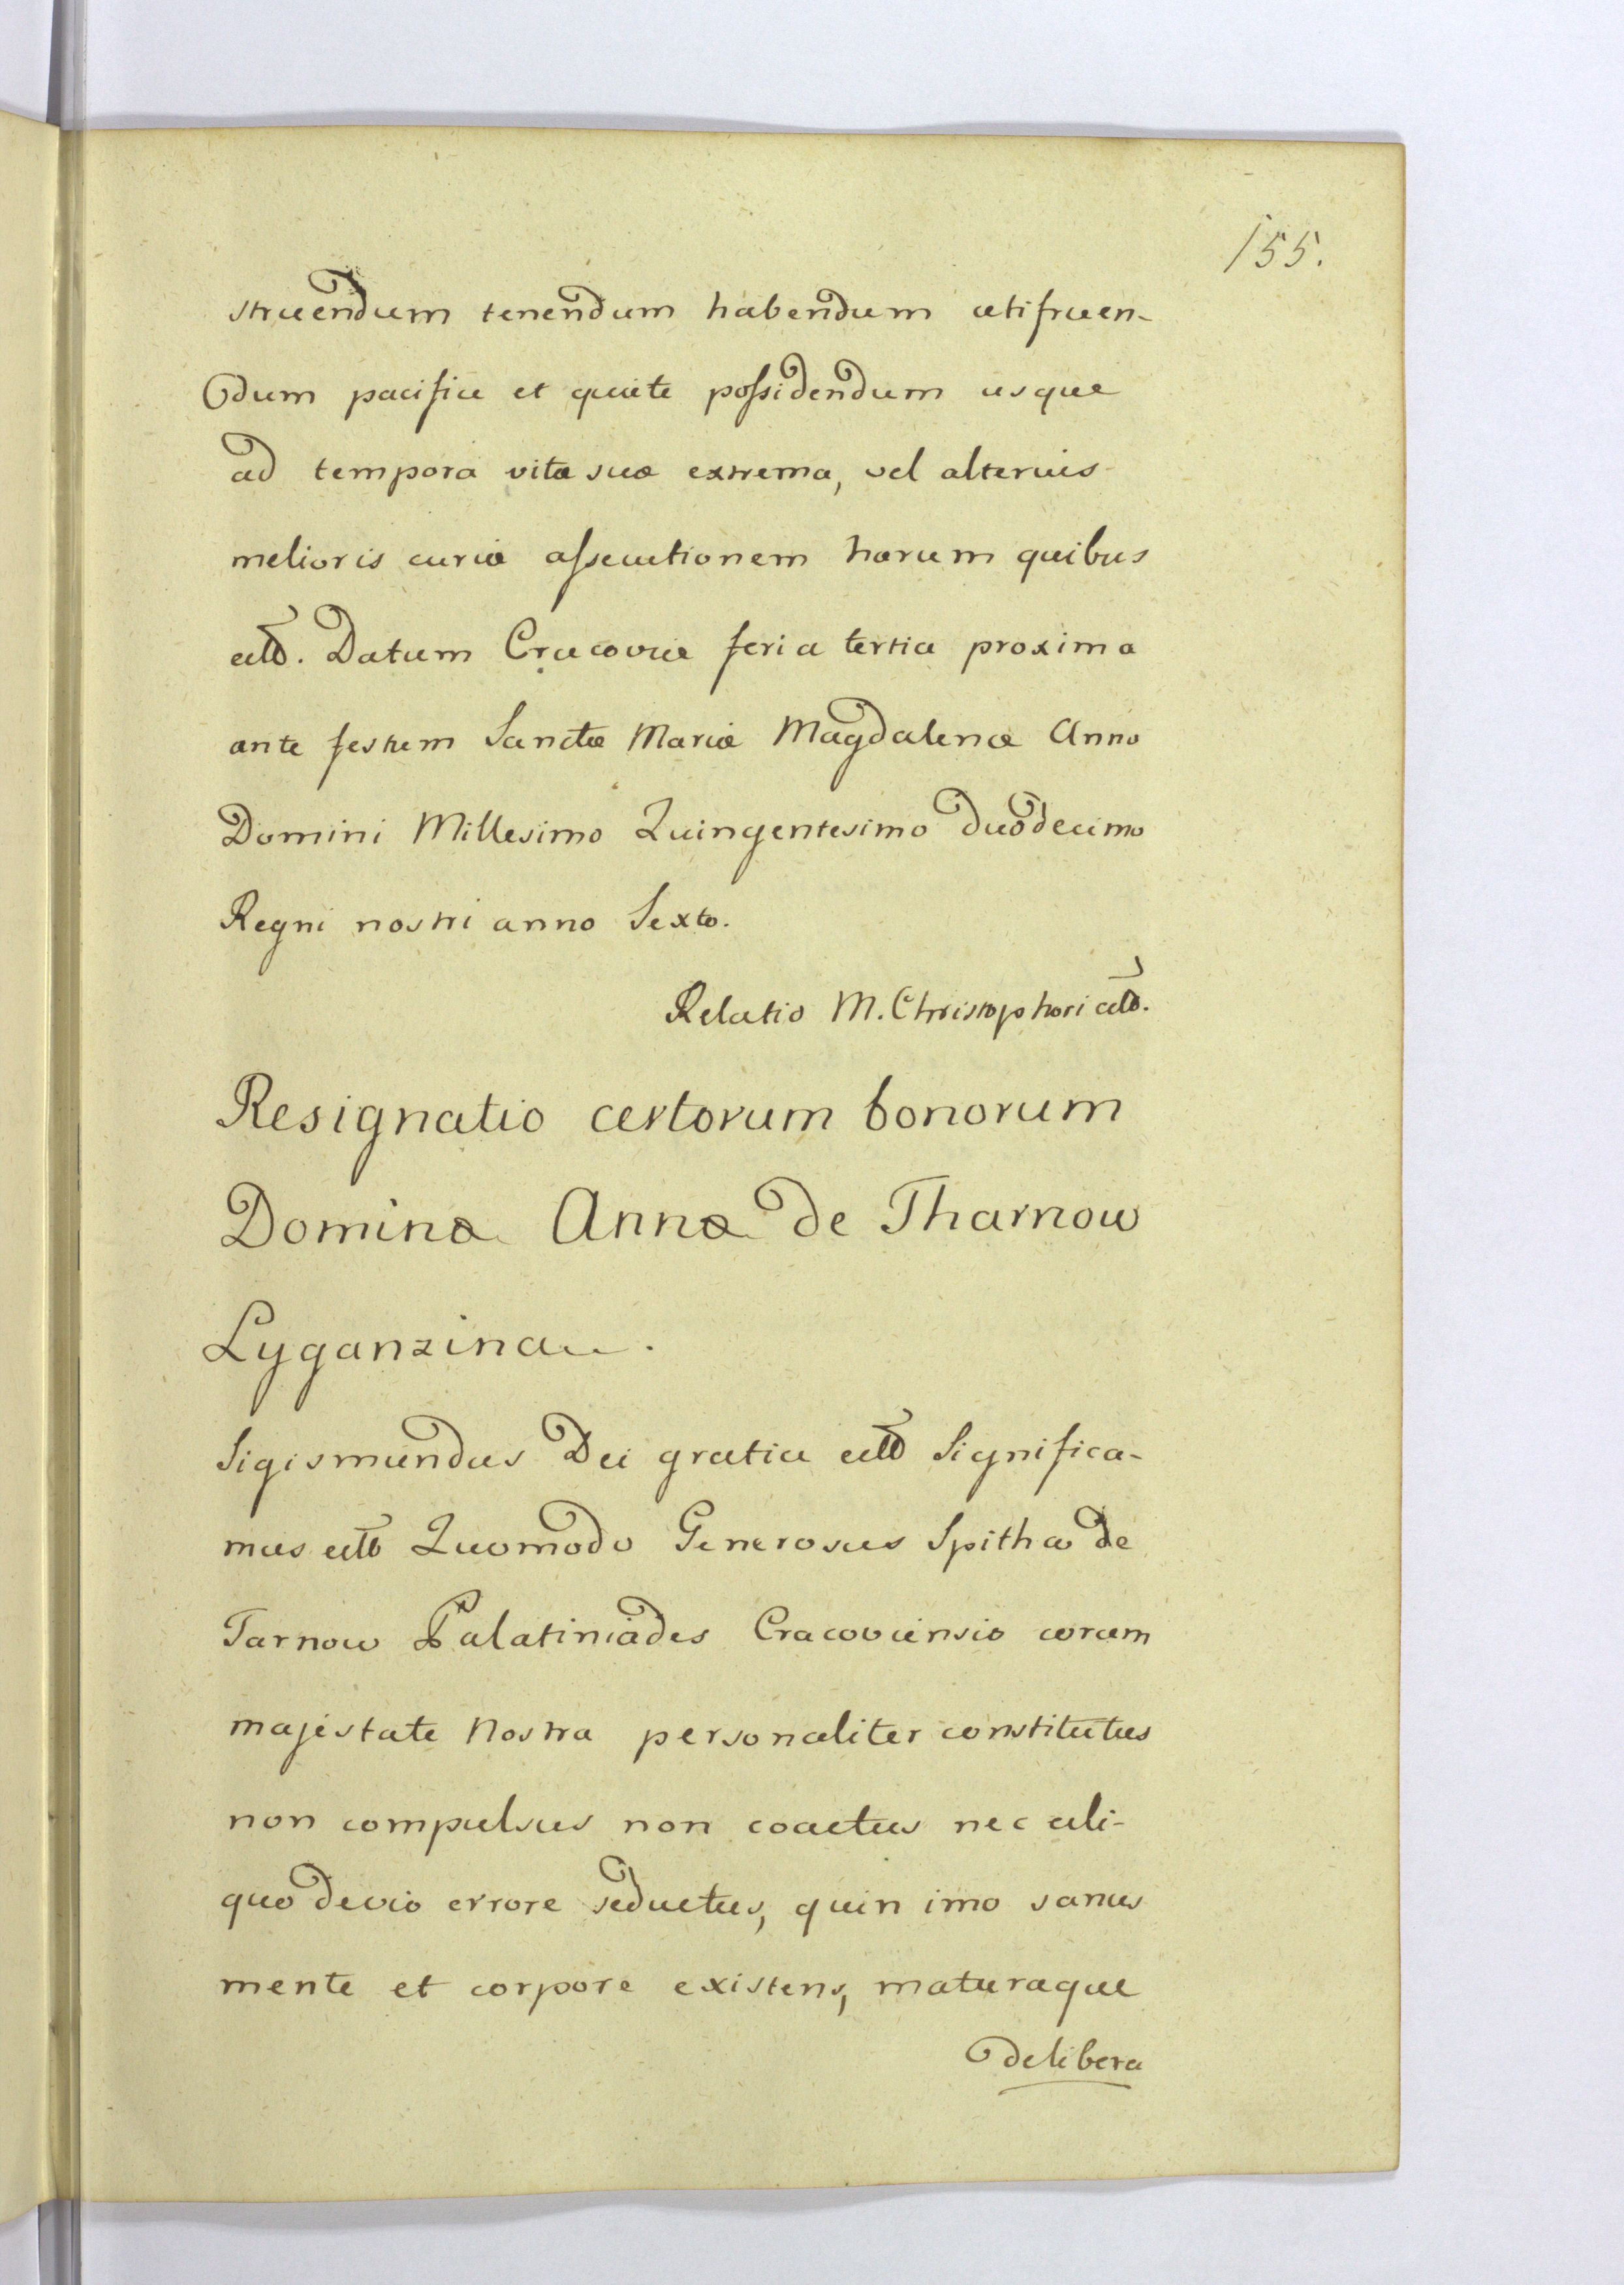 155.
struendum tenendum habendum utifruen-
dum pacifice et quiete possidendum usque
ad tempora vitæ suæ extrema, vel alterius
melioris curiæ assecutionem harum quibus
etto. Datum Cracoviæ feria tertia proxima
ante festum Sanctæ Mariæ Magdalenæ Anno
Domini Millesimo Quingentesimo duodecimo
Regni nostri anno Sexto.
Relatio M. Christophori etto.
Resignatio certorum bonorum
Dominæ Annæ de Tharnow
Lyganzinae.
Sigismundus Dei gratia etto Significa-
mus etto Quomodo Generosus Spitha de
Tarnow Palatiniades Cracoviensis coram
majestate Nostra personaliter constitutus
non compulsus non coactus nec ali-
quo devio errore seductus, quin imo sanus
mente et corpore existens, maturaque
delibera